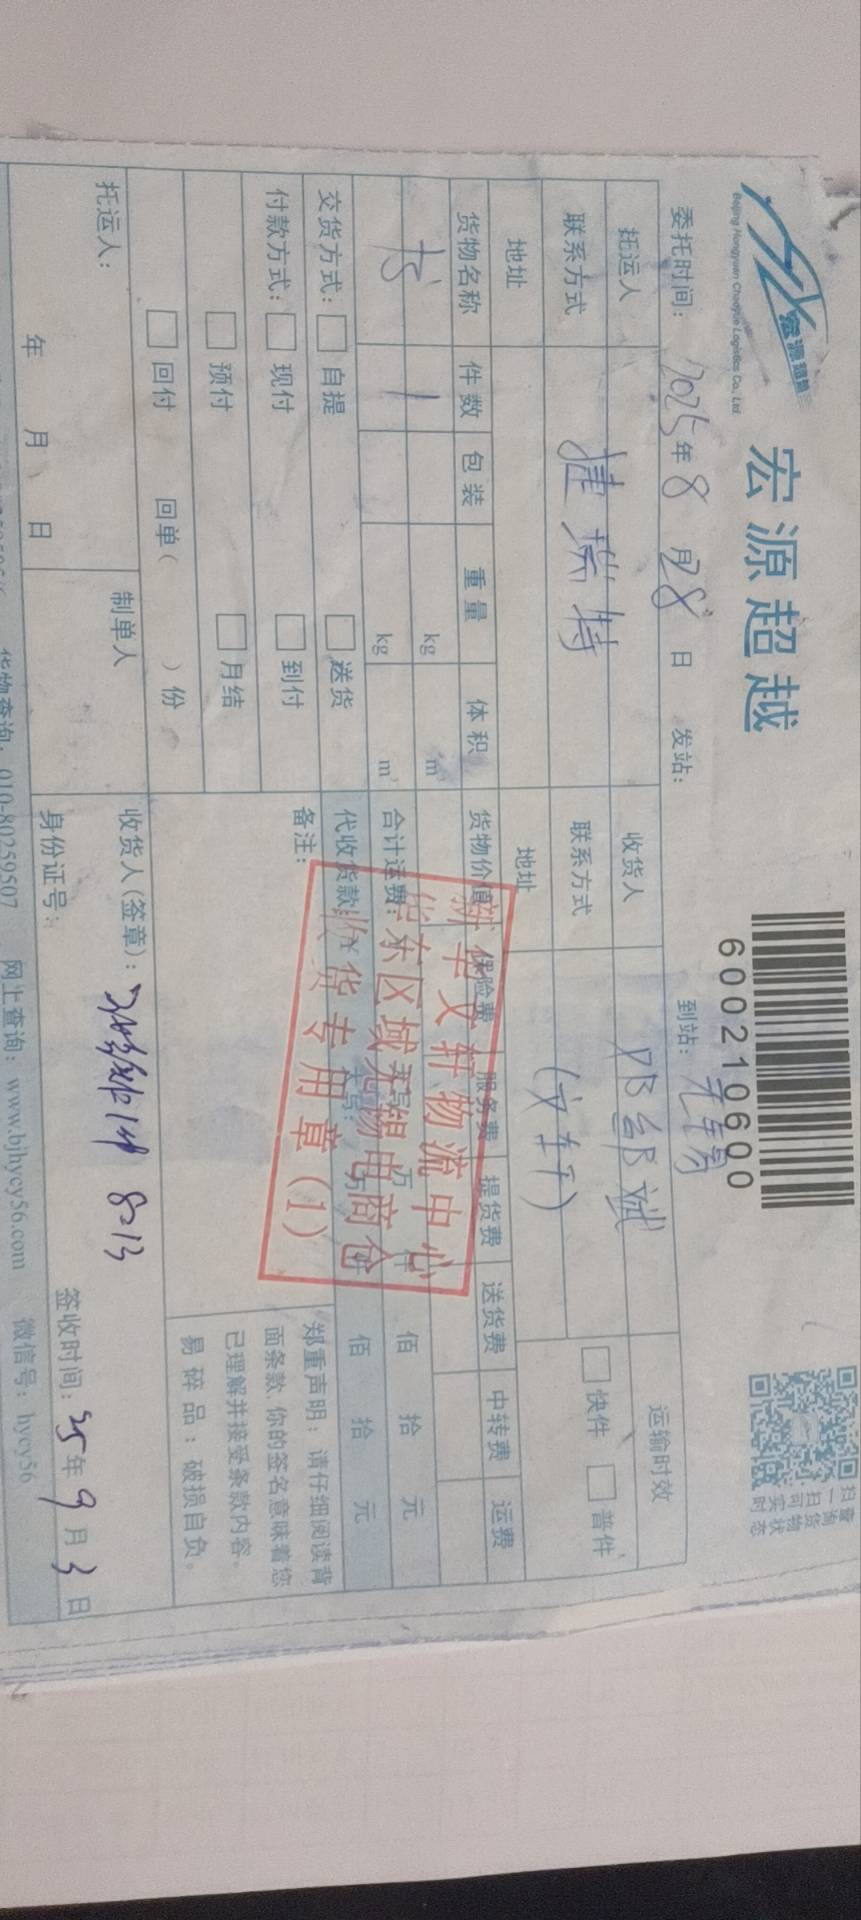 宏源超越
Beijing Hongyuan Chaoyue Logistics Co., Ltd.
宏源超越
600210600
扫一扫 查询货物实时状态
委托时间：2025年8月28日 发站： 到站：无锡
托运人 收货人 运输时效
联系方式 捷瑞特 联系方式 (文轩) 快件 普件
地址 地址
货物名称 件数 包装 重量 体积 货物价值 保险费 服务费 提货费 送货费 中转费 运费
书 1 kg m³
kg m³ 合计运费： 万 仟 佰 拾 元
交货方式： 自提 送货 代收货款： 佰 拾 元
付款方式： 现付 到付 备注：
预付 月结
回付 回单( )份
郑重声明：请仔细阅读背
面条款，你的签名意味着您
已理解并接受条款内容。
易碎品：破损自负。
新华文轩物流中心
华东区域无锡电商仓
收货专用章(1)
托运人： 制单人 收货人(签章)： 8213
年 月 日 身份证号： 签收时间：25年9月3日
货物查询：010-80259507 网上查询：www.bjhycy56.com 微信号：hycy56